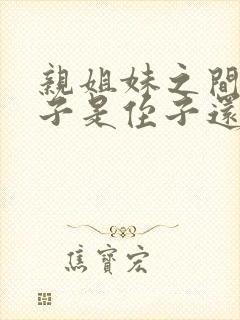 親姐妹之間
子是侄子還
焦寶宏